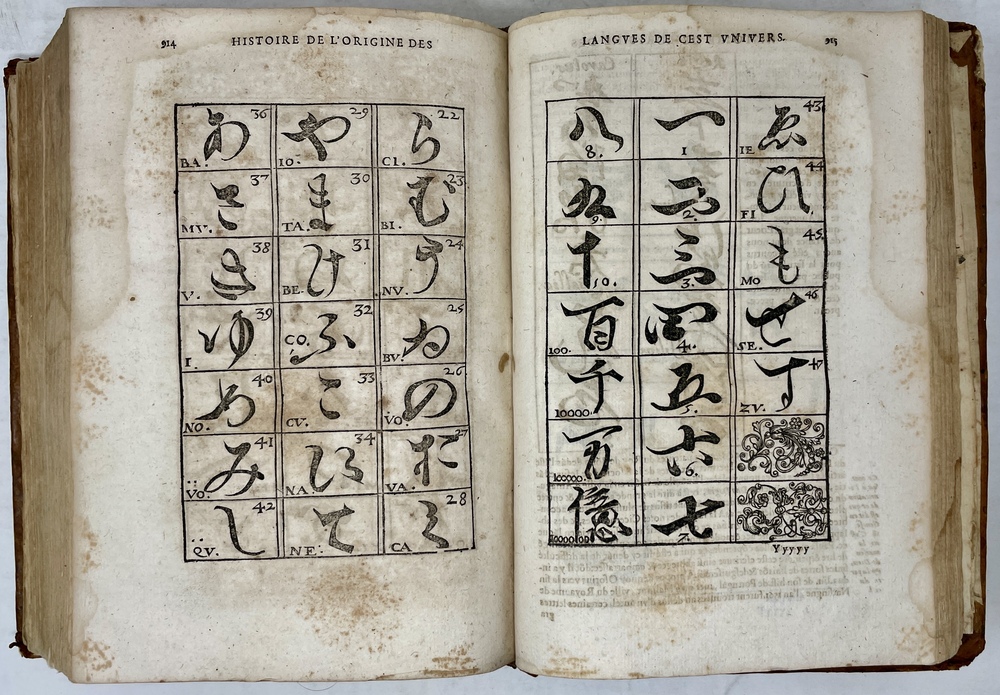 914
HISTOIRE DE L'ORIGINE DES
22 ら CI.
23 む BI.
24 う NV.
25 ゐ BV.
26 の VO.
27 お VA.
28 く CA
29 や IO.
30 ま TA.
31 け BE.
32 ふ CO.
33 こ CV.
34 え NA.
て NE.
36 あ BA.
37 さ MV.
38 き V.
39 ゆ I.
40 め NO.
41 み VO.
42 し QV.
LANGVES DE CEST VNIVERS.
915
43 ゑ IE
44 ひ FI
45 も MO
46 せ SE.
47 す ZV.
一 1
二 2.
三 3.
四 4.
五 5.
六 6.
七 7.
八 8.
九 9.
十 10.
百 100.
千 10000.
万 100000.
億
Yyyyy